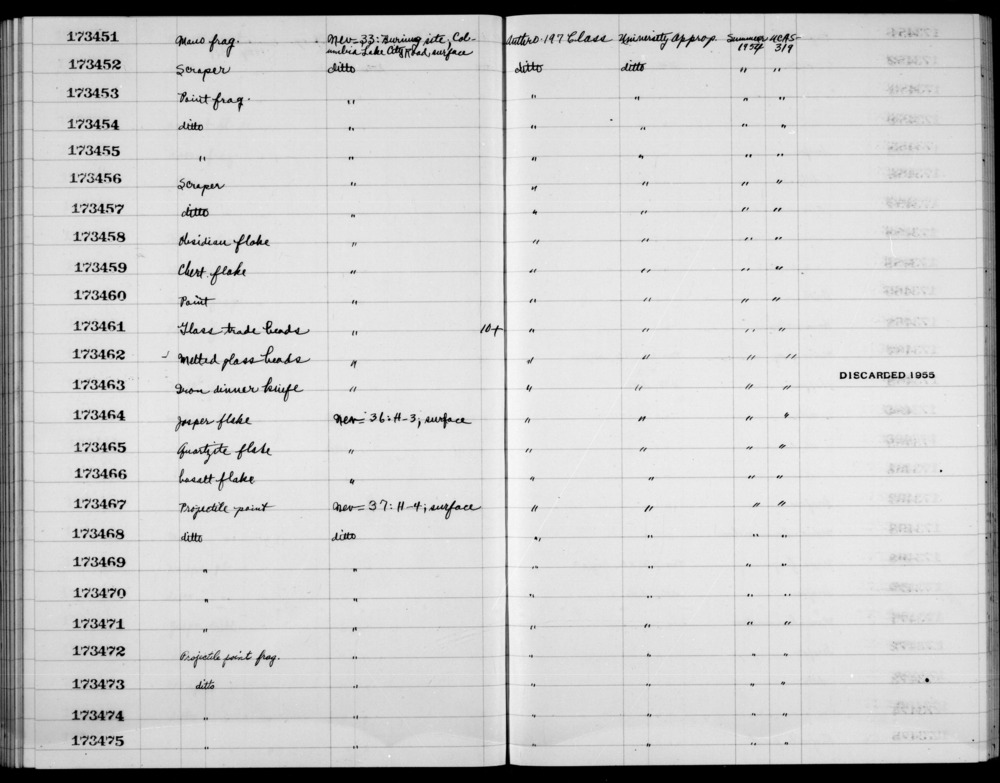 173451 Mano frag. Nev-33: Burning site, Col-umbia Lake City Road, surface Anthro. 197 Class University approp. Summer 1954 UCAS-319
173452 Scraper ditto ditto ditto " "
173453 Point frag. " " " " "
173454 ditto " " " " "
173455 " " " " " "
173456 Scraper " " " " "
173457 ditto " " " " "
173458 Obsidian flake " " " " "
173459 Chert flake " " " " "
173460 Point " " " " "
173461 Glass trade beads " 10+ " " " "
173462 Melted glass beads " " " " "
173463 Iron dinner knife " " " " " DISCARDED 1955
173464 Jasper flake Nev-36: H-3; surface " " " "
173465 Quartzite flake " " " " "
173466 basalt flake " " " " "
173467 Projectile point Nev-37: H-4; surface " " " "
173468 ditto ditto " " " "
173469 " " " " " "
173470 " " " " " "
173471 " " " " " "
173472 Projectile point frag. " " " " "
173473 ditto " " " " "
173474 " " " " " "
173475 " " " " " "